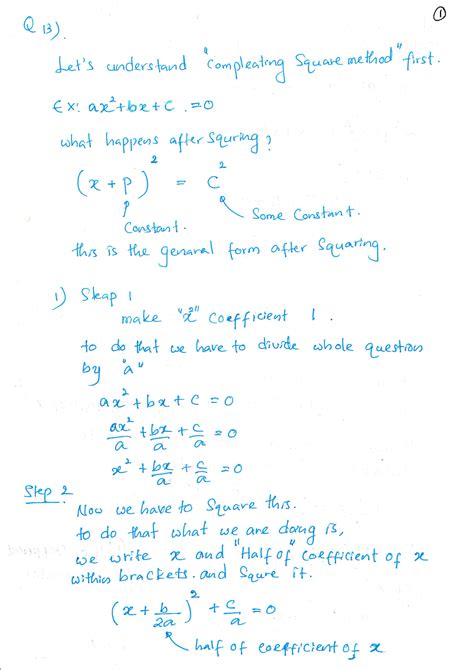 ①
Q 13).
Let's understand "Compleating Square method" first.
Ex: ax²+bx+c.=0
what happens after Squring?
(x+p)² = c²
Constant.
Some Constant.
this is the genaral form after Squaring.
1) Steap 1
make "x²" Coefficient 1.
to do that we have to divide whole question
by "a"
ax²+bx+c=0
ax²/a + bx/a + c/a = 0
x² + bx/a + c/a = 0
Step 2
Now we have to Square this.
to do that what we are doing is,
we write x and "Half of" coefficient of x
within brackets. and Squre it.
(x + b/2a)² + c/a = 0
half of coefficient of x